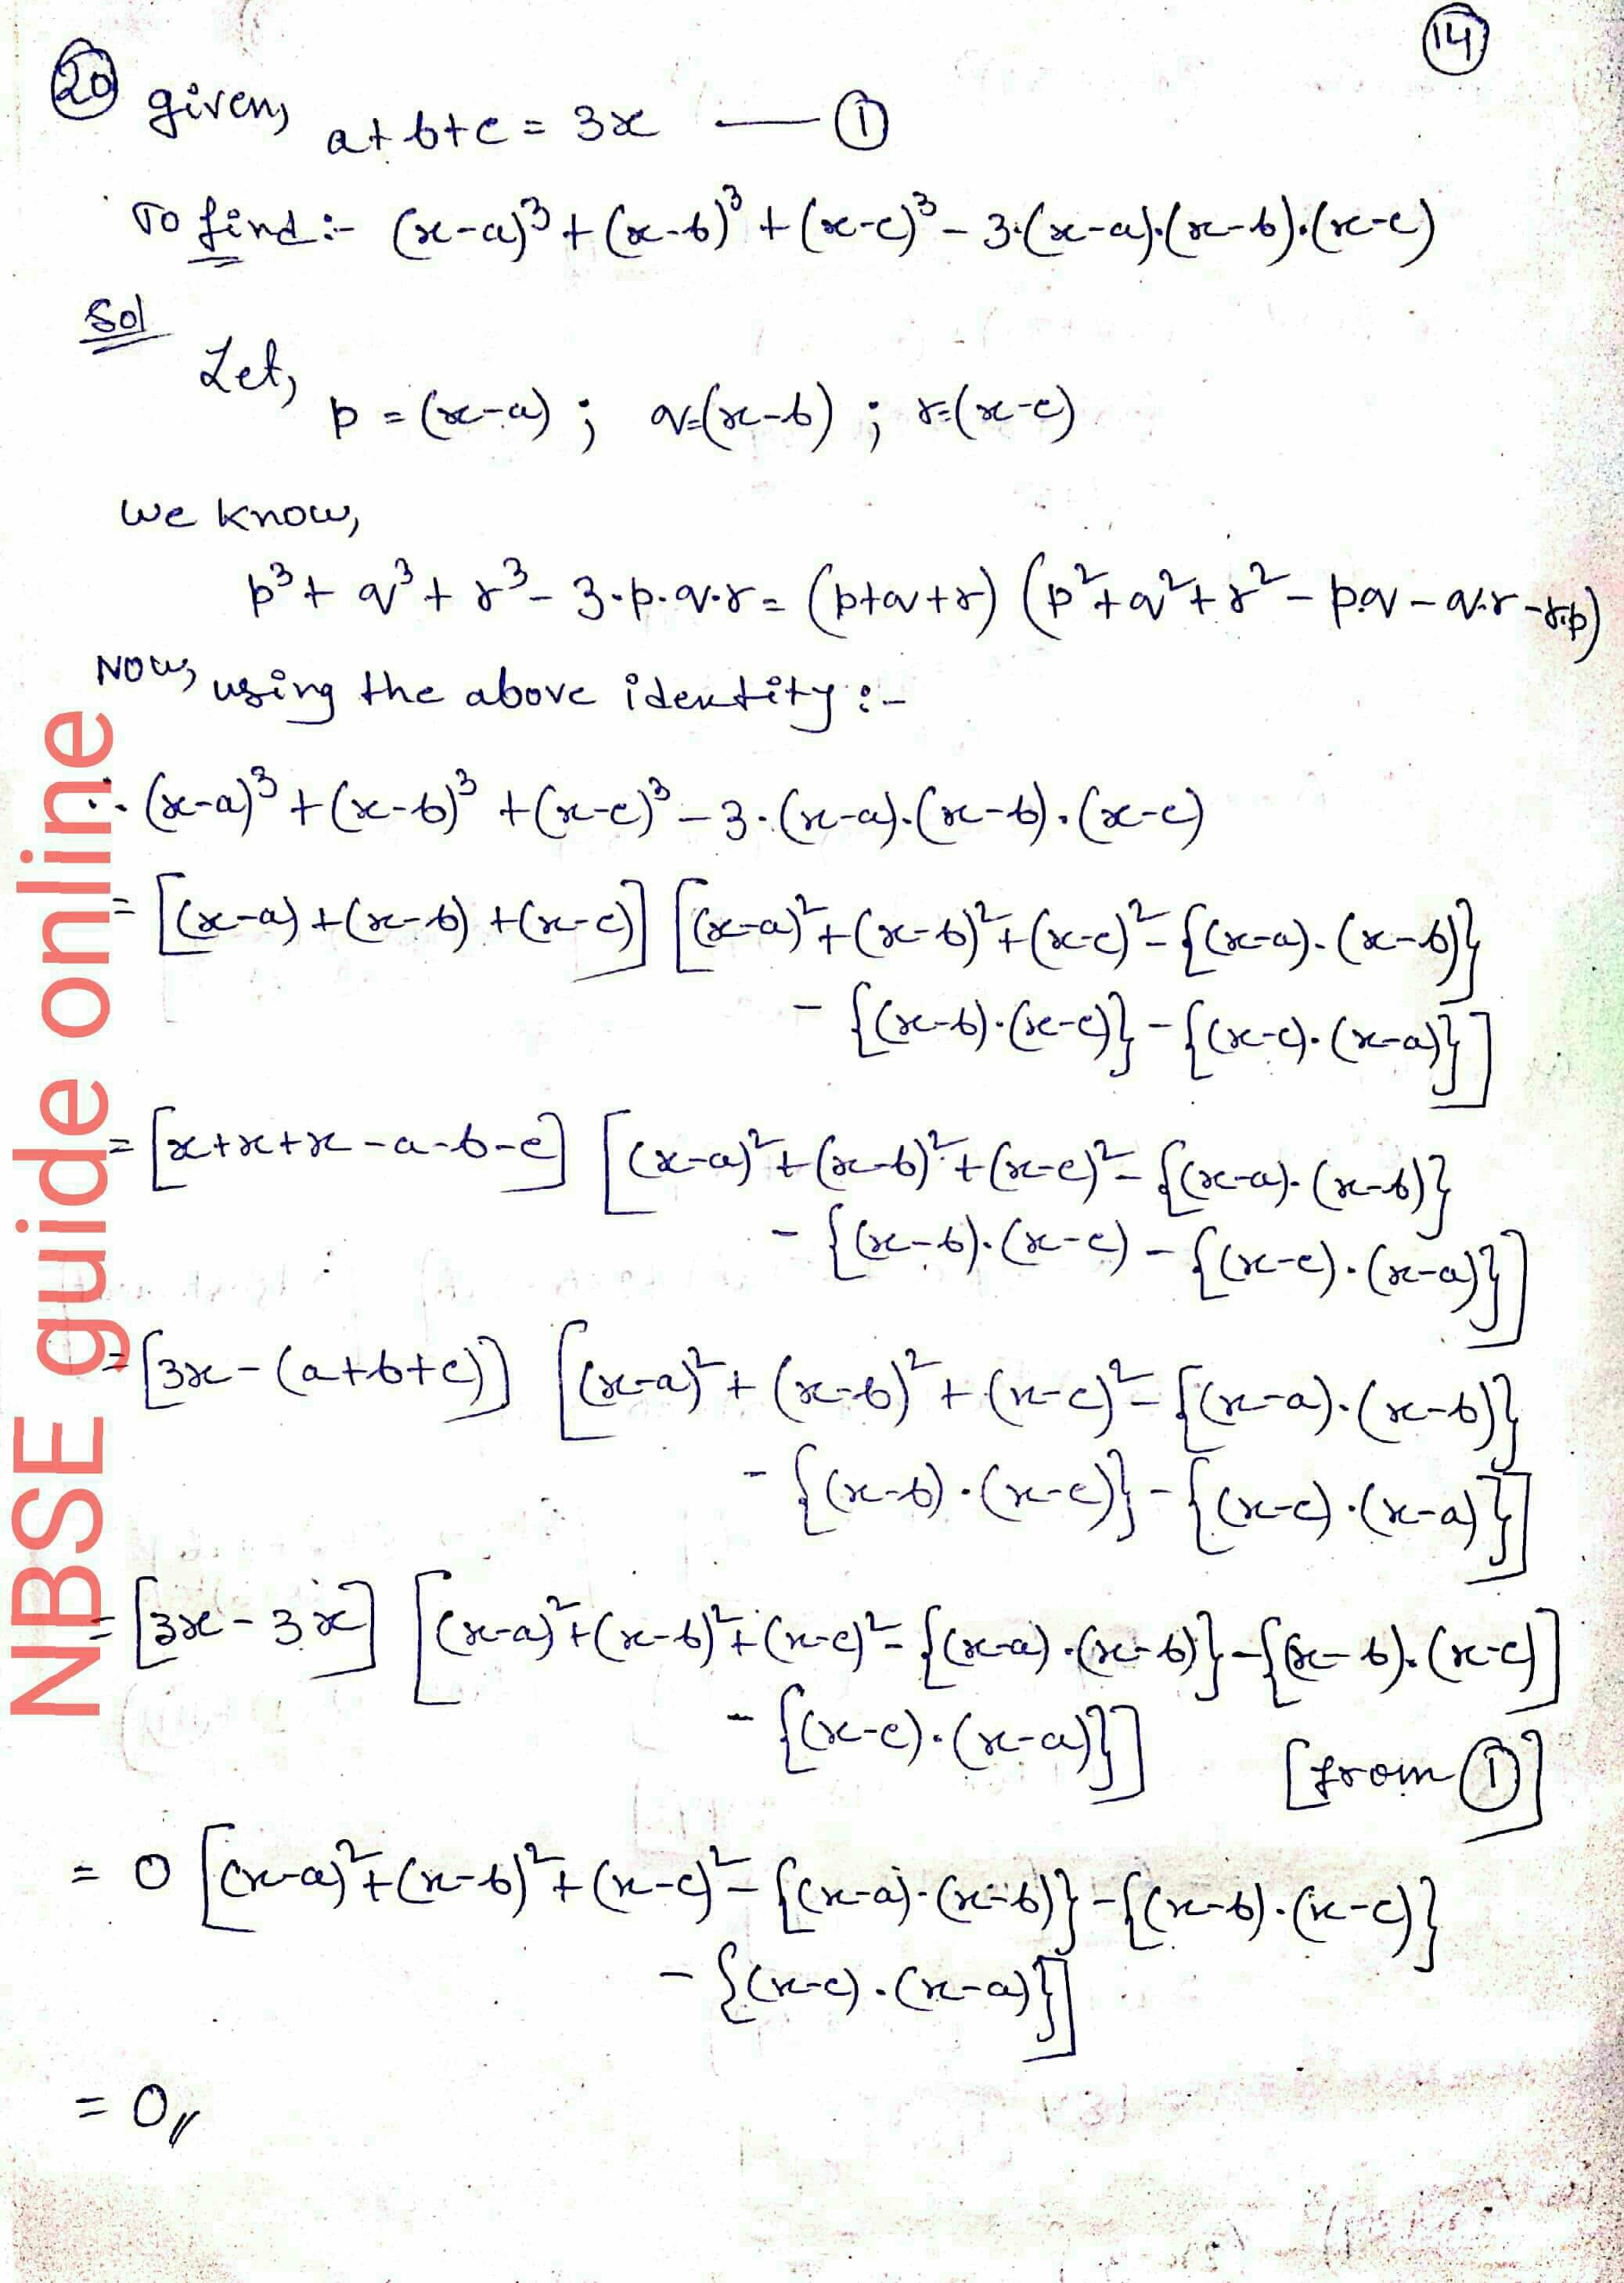 14
20 given, a+b+c = 3x — 1
To find :- (x-a)³ + (x-b)³ + (x-c)³ - 3·(x-a)·(x-b)·(x-c)
Sol
Let,
p = (x-a) ; q=(x-b) ; r=(x-c)
we know,
p³ + q³ + r³ - 3·p·q·r = (p+q+r) (p² + q² + r² - p.q - q.r - r.p)
Now, using the above identity :-
∴ (x-a)³ + (x-b)³ + (x-c)³ - 3·(x-a)·(x-b)·(x-c)
= [(x-a) + (x-b) + (x-c)] [(x-a)² + (x-b)² + (x-c)² - {(x-a)·(x-b)}
- {(x-b)·(x-c)} - {(x-c)·(x-a)}]
= [x+x+x-a-b-c] [(x-a)² + (x-b)² + (x-c)² - {(x-a)·(x-b)}
- {(x-b)·(x-c) - {(x-c)·(x-a)}]
= [3x - (a+b+c)] [(x-a)² + (x-b)² + (x-c)² - {(x-a)·(x-b)}
- {(x-b)·(x-c)} - {(x-c)·(x-a)}]
= [3x - 3x] [(x-a)² + (x-b)² + (x-c)² - {(x-a)·(x-b)} - {(x-b)·(x-c)]
- {(x-c)·(x-a)}] [from 1]
= 0 [(x-a)² + (x-b)² + (x-c)² - {(x-a)·(x-b)} - {(x-b)·(x-c)}
- {(x-c)·(x-a)}]
= 0//
NBSE guide online